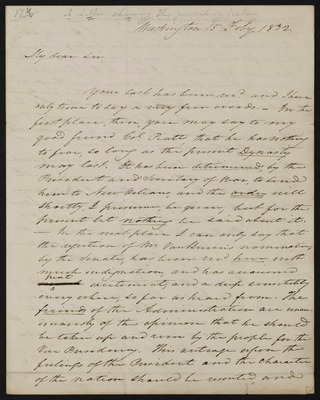 A letter
Washington 15 Feby. 1832.
My dear Sir
Your last has been recd and I have
only time to say a very few words. - In the
first place, then, you may say to my
good friend Col. Piatt that he has nothing
to fear, so long as the present Dynasty
may last. It has been determined by the
President and Secretary of War, to send
him to New Orleans and the order will
shortly I presume, be given, but for the
present let nothing be said about it.
- In the next place I can only say that
the rejection of Mr Van Buren's nomination
by the Senate, has been recd here with
much indignation, and has occasioned
great excitement, and a deep sensibility
every where so far as heard from. The
friends of the Administration are unan-
imously of the opinion that he should
be taken up and run by the people for the
Vice Presidency. This outrage upon the
feelings of the President and the character
of the nation should be resented and